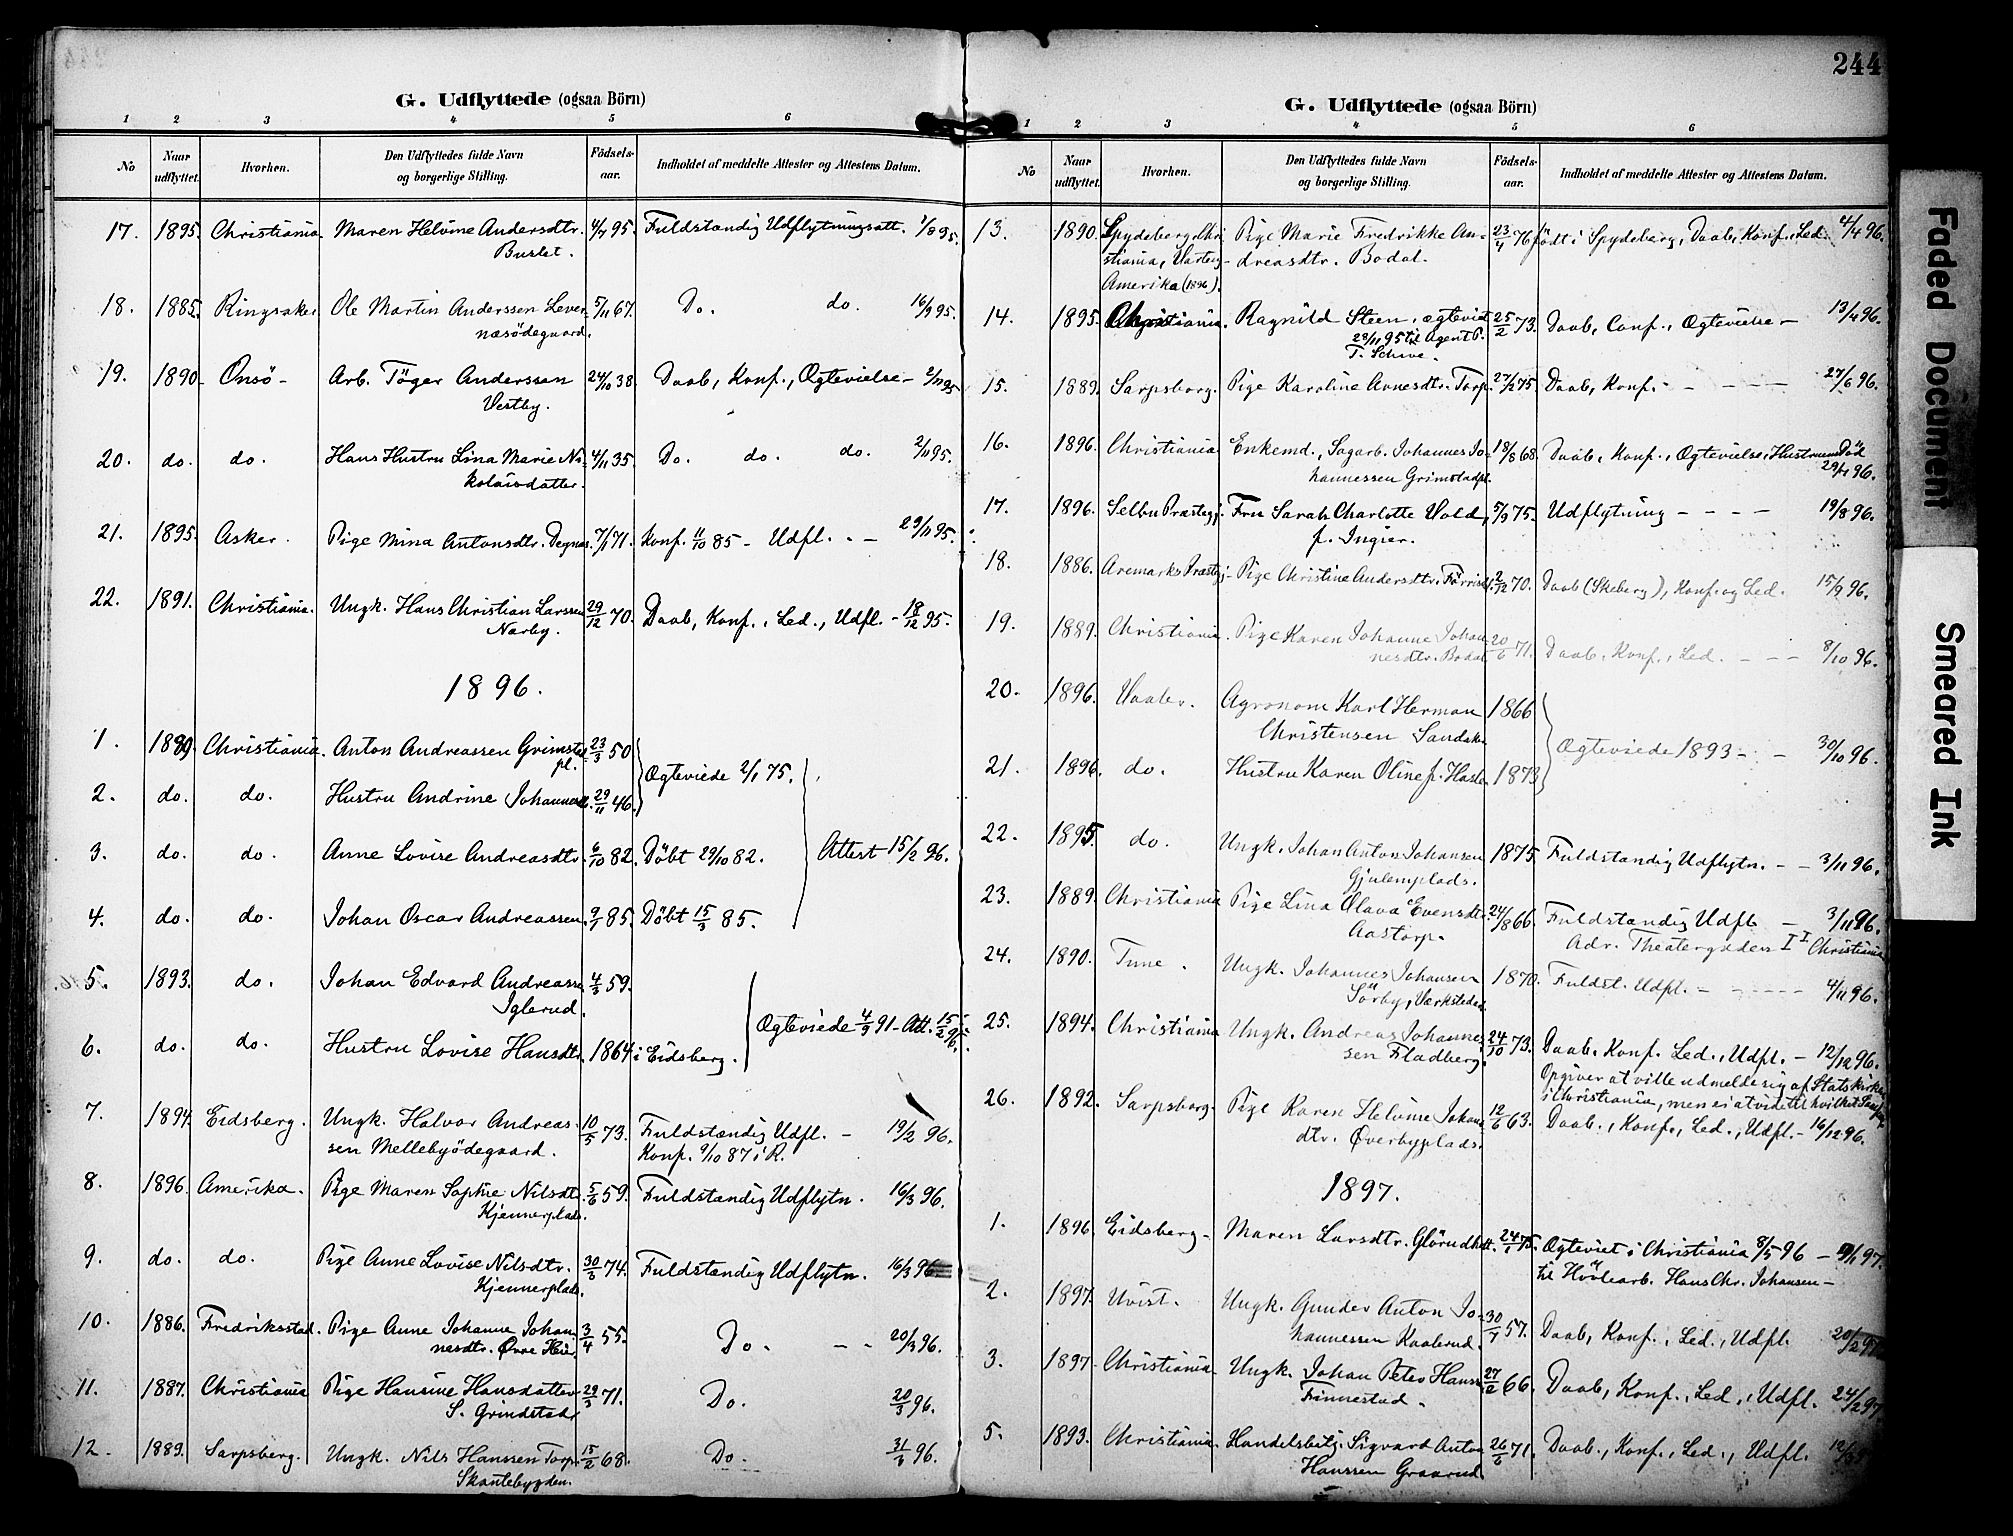 244
G. Udflyttede (ogsaa Börn)
1 2 3 4 5 6
No Naar udflyttet. Hvorhen. Den Udflyttedes fulde Navn og borgerlige Stilling. Födselsaar. Indholdet af meddelte Attester og Attestens Datum.
17. 1895. Christiania. Maren Helvine Andersdtr. 4/7 95. Fuldstændig Udflytningsatt. 1/8 95.
Buslet.
18. 1885. Ringsaker Ole Martin Anderssen Lever- 5/11 67. Do. do. 16/9 95.
næsödegaard.
19. 1890 Onsö - Arb. Töger Anderssen 24/10 38. Daab, Konf., Ogtevielse - 2/11 95.
Vestby.
20. do. do. Hans Hustru Lina Marie Ni- 4/11 35. Do. do. do. 2/11 95.
kolaisdatter.
21. 1895. Asker. Pige Mina Antonsdtr. Degnæs. 7/1 71. Konf. 11/10 85 - Udfl. - - 29/11 95.
22. 1891. Christiania. Ungk. Hans Christian Larssen 29/12 70. Daab, Konf., Led., Udfl. - 18/12 95.
Narby.
1896.
1. 1889 Christiania. Anton Andreassen Grimstad- 23/3 50
pl.
Ogteviede 2/1 75.
2. do. do. Hustru Andrine Johannesdt. 29/11 46.
3. do. do. Anne Lovise Andreasdtr. 6/10 82. Döbt 29/10 82. Attest 15/2 96.
4. do. do. Johan Oscar Andreassen. 9/1 85. Döbt 15/3 85.
5. 1893. do. Johan Edvard Andreasse 4/3 59.
Iglerud.
Ogteviede 4/9 91 - Att. 15/2 96.
6. do. do. Hustru Lovise Hansdtr. 1864. i Eidsberg.
7. 1894. Eidsberg. Ungk. Halvor Andreas- 10/5 73. Fuldstændig Udfl. - 19/2 96.
sen Mellebyödegaard. Konf. 9/10 87 i R.
8. 1896. Amerika. Pige Maren Sophie Nilsdtr. 5/6 59. Fuldstændig Udflytn. 16/3 96.
Kjennerplads.
9. do. do. Pige Anne Lovise Nilsdtr. 30/3 74. Fuldstændig Udflytn. 16/3 96.
Kjennerplads.
10. 1886. Fredriksstad. Pige Anne Johanne Johan 3/4 55. Do. - - 20/3 96.
nesdtr. Övre Heier.
11. 1887. Christiania Pige Hansine Hansdatter 29/3 71. Do. 20/3 96.
S. Grindstad
12. 1889. Sarpsberg. Ungk. Nils Hanssen Torp. 15/2 68. Do. 31/3 96.
Skantebygden.
G. Udflyttede (ogsaa Börn)
1 2 3 4 5 6
No Naar udflyttet. Hvorhen. Den Udflyttedes fulde Navn og borgerlige Stilling. Födselsaar. Indholdet af meddelte Attester og Attestens Datum.
13. 1890. Spydeberg, Chri Pige Marie Fredrikke An- 23/4 76 födt i Spydeberg, Daab, Konf., Led. 4/4 96.
stiania, Varteig - dreasdtr. Bodal.
Amerika (1896).
14. 1895. Christiania. Ragnild Steen, ægteviet 25/2 73. Daab, Conf., Ogtevielse - 13/4 96.
28/11 95 til Agent P.
T. Schive.
15. 1889. Sarpsborg. Pige Karoline Arnesdtr. Torp. 27/2 75. Daab, Konf. - - - - - 27/6 96.
16. 1896. Christiania Enkemd., Sagarb. Johannes Jo- 18/8 68. Daab, Konf., Ogtevielse, Hustruens Död
hannessen Grimstadpl. 29/7 96.
17. 1896. Selbu Præstegj. Fru Sarah Charlotte Vold, 5/9 75. Udflytning - - - - 19/8 96.
f. Ingier.
18. 1886. Aremarks Præstegj. Pige Christine Andersdtr. 2/12 70. Daab (Skeberg), Konf. og Led. 15/9 96.
19. 1889. Christiania. Pige Karen Johanne Johan- 20/6 71. Daab, Konf., Led. - - - 8/10 96.
nesdtr. Bodal
20. 1896. Vaaler. Agronom Karl Herman 1866
Christensen Sandak
Ogteviede 1893 - - 30/10 96.
21. 1896. do. Hustru Karen Oline f. Hasle. 1873
22. 1895 do. Ungk. Johan Anton Johansen 1875. Fuldstændig Udflytn. - - 3/11 96.
Gjulemplads.
23. 1889. Christiania Pige Lina Olava Evensdtr. 24/8 66. Fuldstændig Udfl. - 3/11 96.
Aastorp. Adr. Theatergaden I I Christiania
24. 1890. Tune. Ungk. Johannes Johansen 1870. Fuldst. Udfl. - - - - - 4/11 96.
Sörby, Værkstedar
25. 1894. Christiania Ungk. Andreas Johannes 24/10 73. Daab. Konf. Led., Udfl. - 12/12 96.
sen Fladberg. Opgiver at ville udmelde sig af Statskirke
i Christiania, men ei at vide til hvilket Samf.
26. 1892. Sarpsborg. Pige Karen Helvine Johan 12/6 63. Daab., Konf., Led., Udfl. - 16/12 96.
dtr. Överbyplads.
1897.
1. 1896. Eidsberg - Maren Larsdtr. 24/1 75. Ogteviet i Christiania 8/5 96 - 9/1 97.
til Hövlearb. Hans Chr. Johansen -
2. 1897. Uvist. Ungk. Gunder Anton Jo- 30/7 57. Daab, Konf., Led., Udfl. 20/2 97
hannessen Kaalerud.
3. 1897 Christiania Ungk. Johan Peter Hanss 27/2 66. Daab, Konf., Led., Udfl. 24/2 97
Finnestad.
5. 1893. Christiania. Handelsbetj. Sigvard Anton 26/6 71. Daab., Konf., Led., Udfl.
Hanssen Graarud.
Faded Document
Smeared Ink